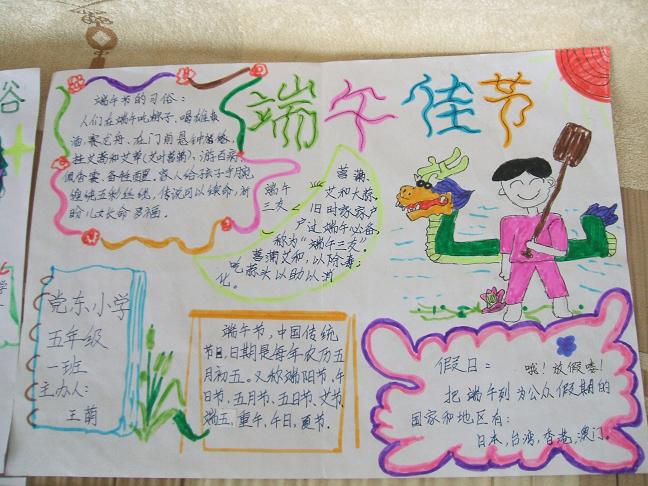 端午佳节
端午节的习俗：
人们在端午吃粽子，喝雄黄
酒，赛龙舟，在门前悬钟馗像，
挂艾蒿和艾草（艾叶菖蒲），游百病，
佩香囊，备牲醴，客人给孩子手腕
缠绕五彩丝线，传说可以续命，祈
盼儿女长命多福。
端午
三友
菖蒲、
艾和大蒜，
旧时家家户
户过端午必备，
称为“端午三友”。
菖蒲艾和，以除毒；
吃蒜头以助以消
化。
党东小学
五年级
一班
主办人：
王萌
端午节，中国传统
节日，日期是每年农历五
月初五。又称端阳节、午
日节、五月节、五日节、艾节、
端五、重午、午日、夏节。
假日：
哦！放假喽！
把端午列为公众假期的
国家和地区有：
日本，台湾，香港，澳门。